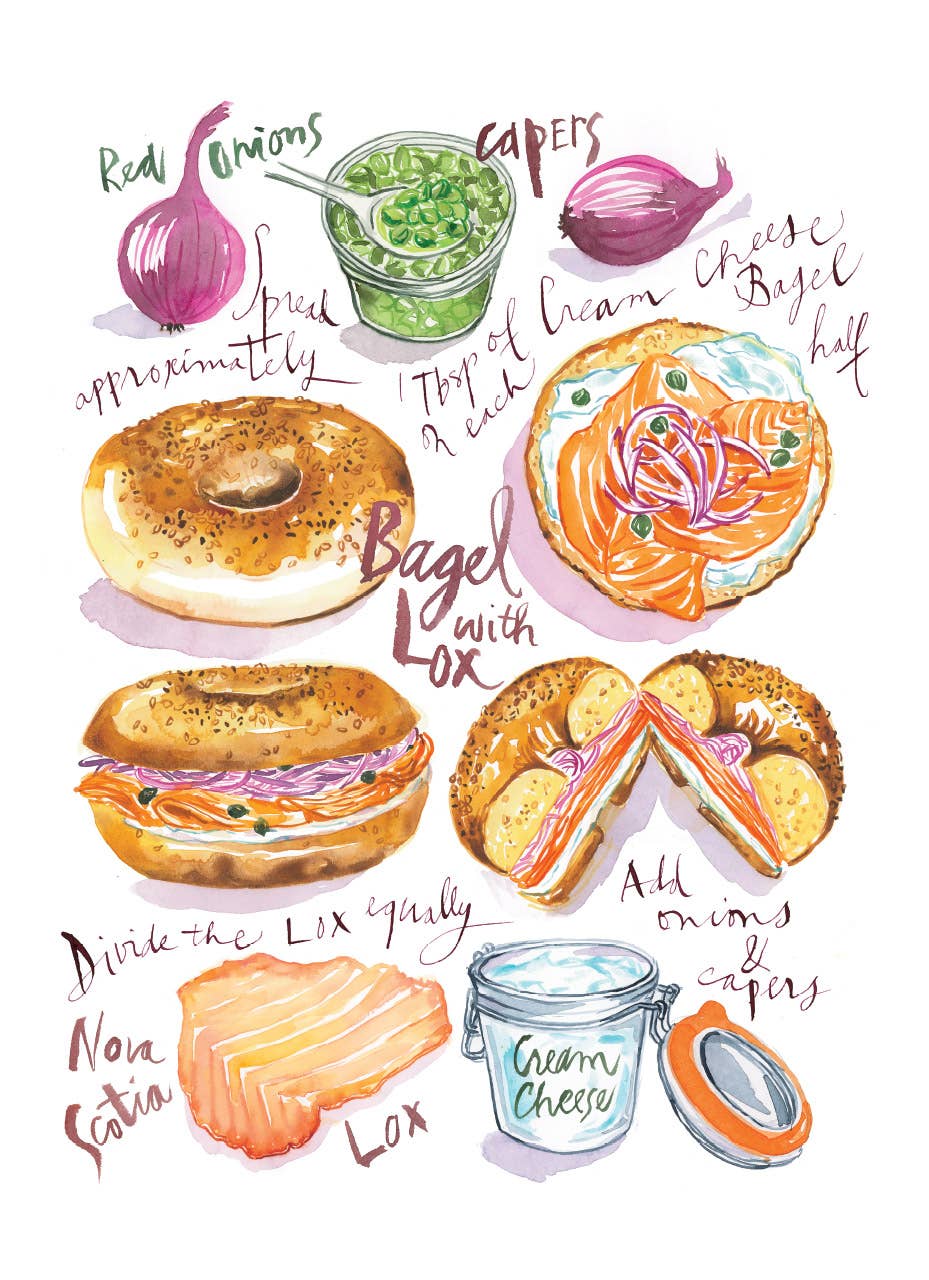 Red onions
capers
Spread
approximately
1 Tbsp of Cream Cheese
on each Bagel
half
Bagel
with
Lox
Divide the Lox equally
Add
onions
&
capers
Nova
Scotia
Lox
Cream
Cheese